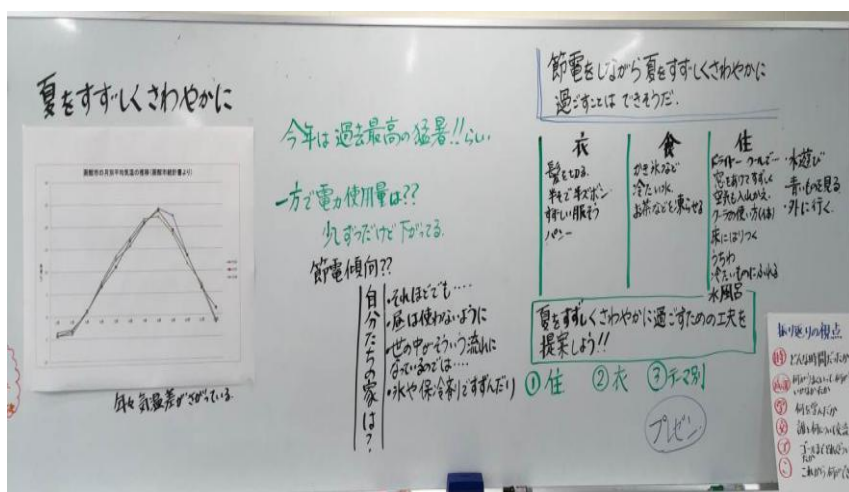 夏をすずしくさわやかに
函館市の月別平均気温の推移(函館市統計書より)
年々気温差がさがっている
今年は過去最高の猛暑!!らしい
一方で電力使用量は??
少しずつだけど下がってる
節電傾向??
自分たちの家は?
・それほどでも....
・昼は使わないように
・世の中がそういう流れに
なっているのでは....
・氷や保冷剤ですずんだり
節電をしながら夏をすずしくさわやかに
過ごすことはできそうだ.
衣
髪を切る.
半そで半ズボン
すずしい服そう
パンー
食
かき氷など
冷たい水.
お茶などを凍らせる
住
窓をあけてすずしく
空気も入れかえ.
床にはりつく
うちわ
冷たいものにふれる
水風呂
・水遊び
・青いものを見る
・外に行く.
夏をすずしくさわやかに過ごすための工夫を
提案しよう!!
①住 ②衣 ③テーマ別
プレゼン
振り返りの視点
どんな時間だったか
何を学んだか